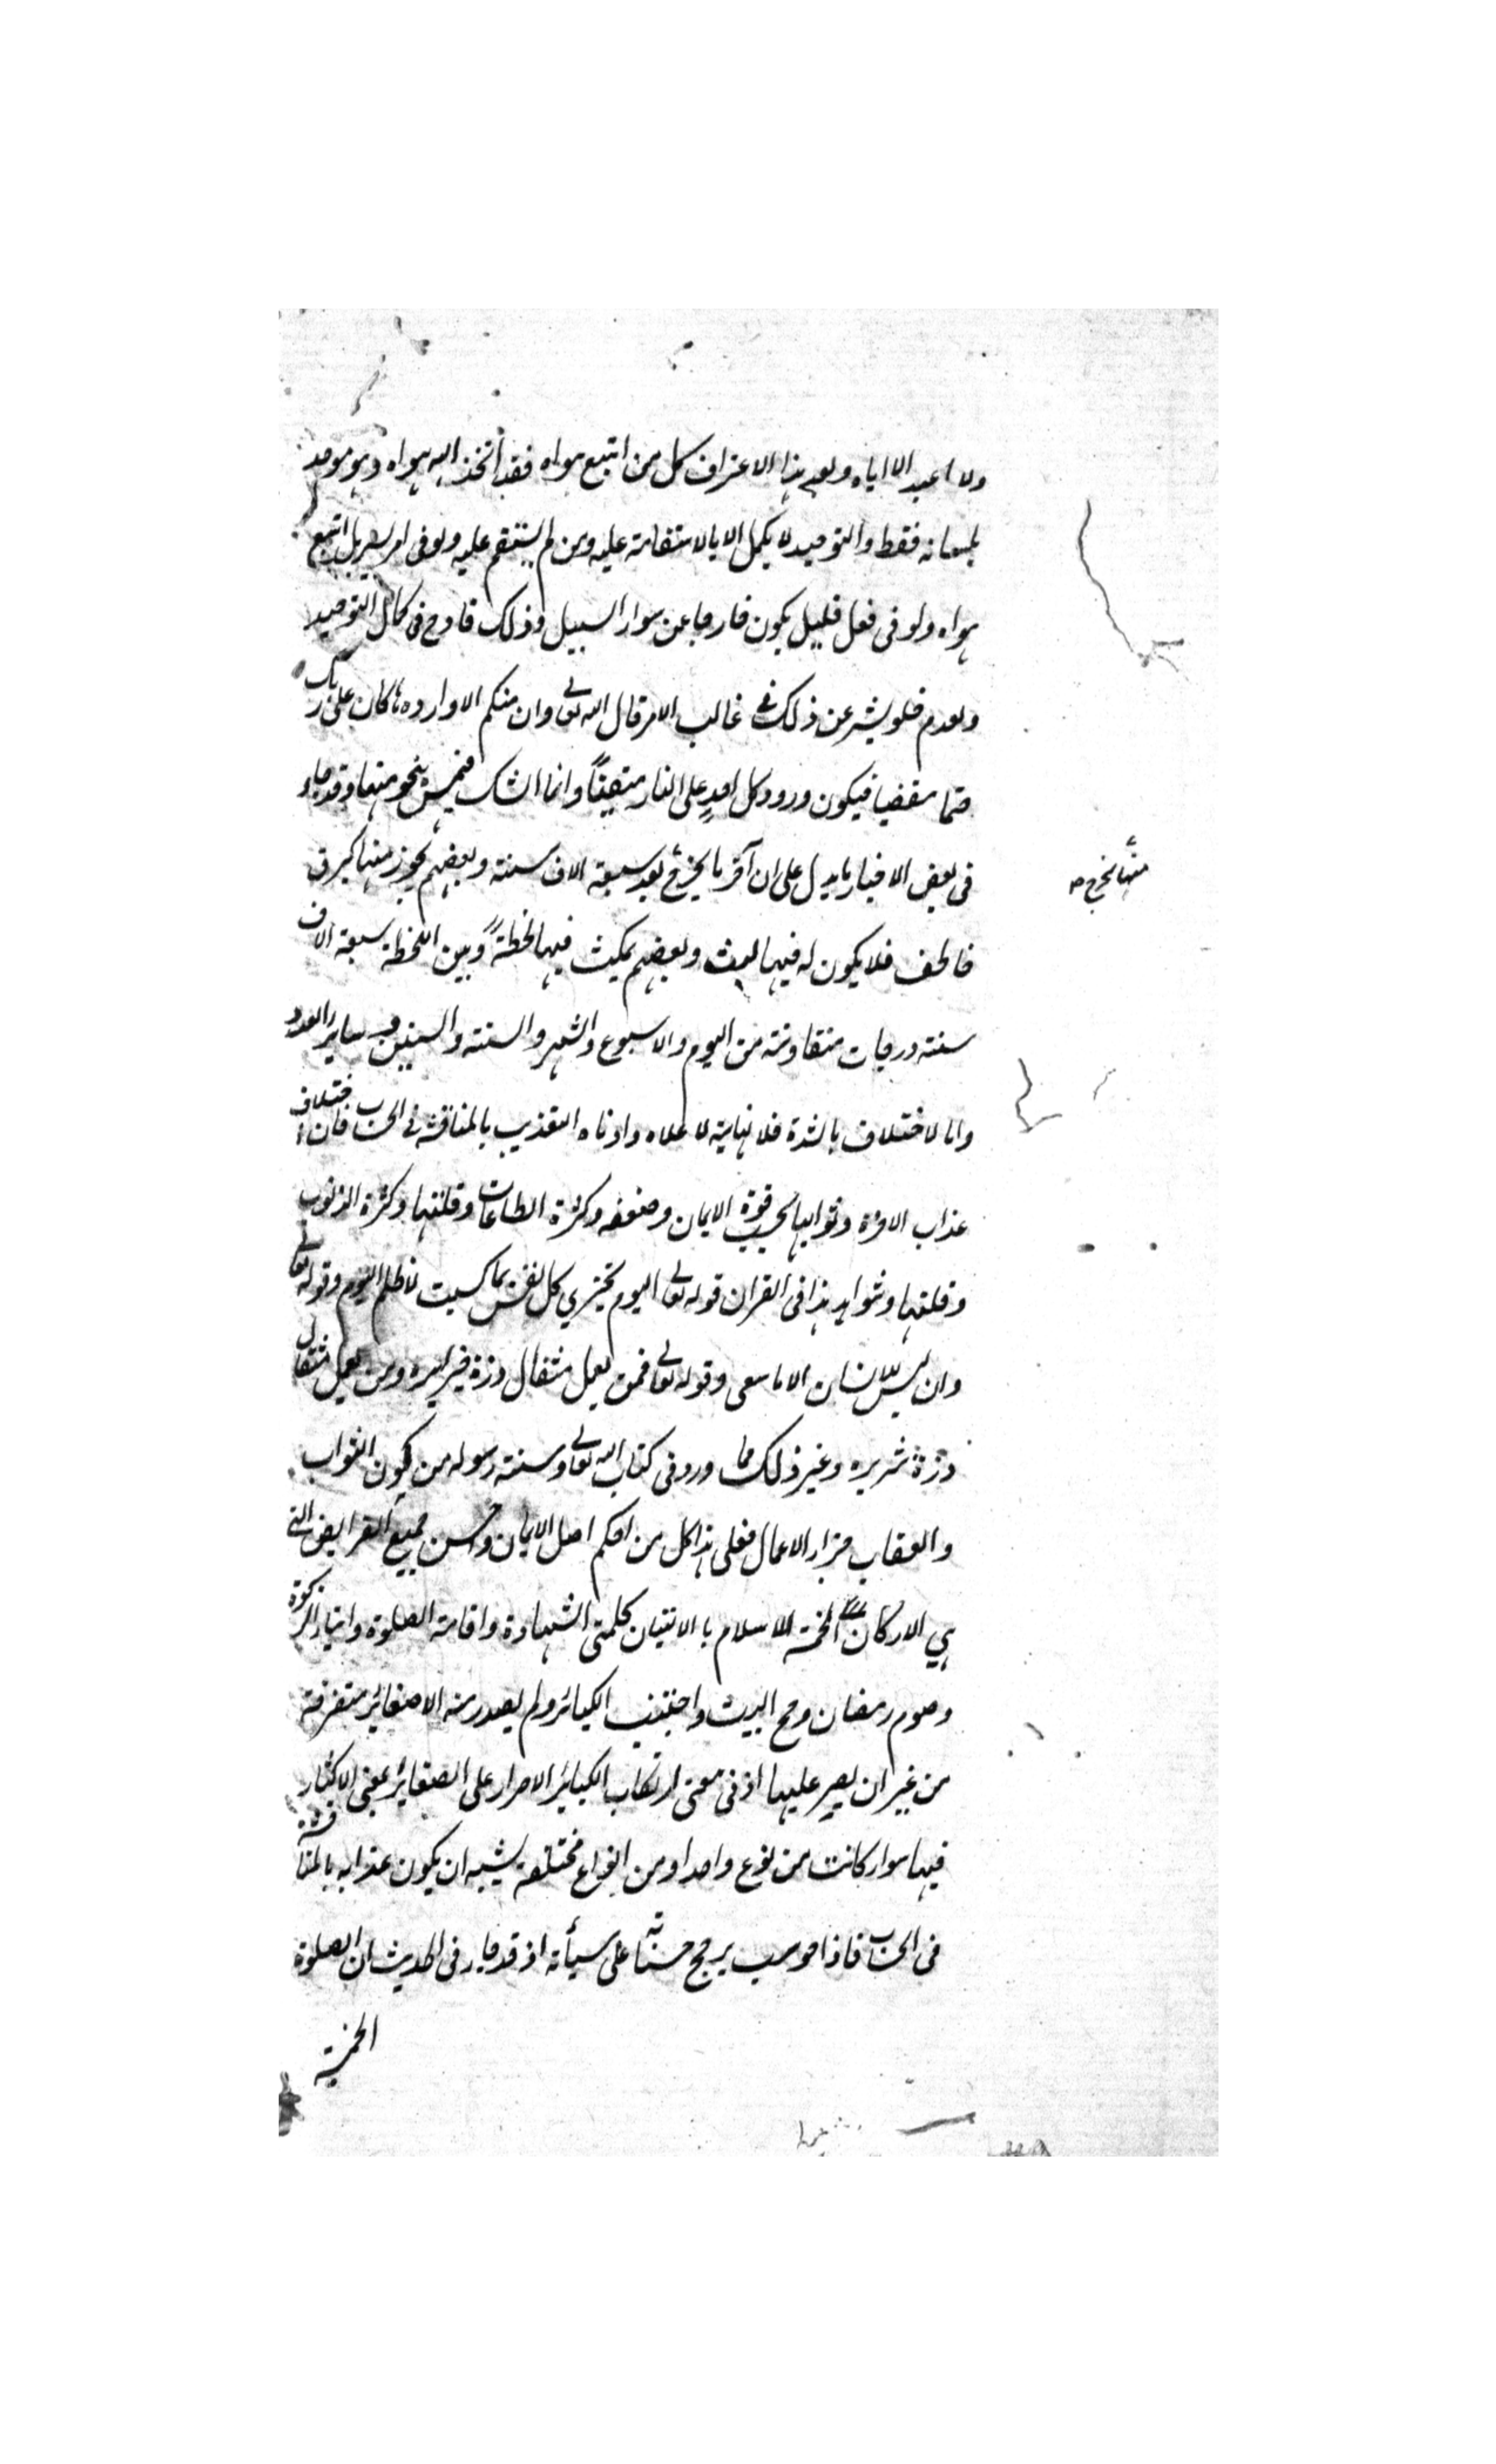 ولا اعبد الا اياه وبعد هذا الاعتراف كل من اتبع هواه فقد اتخذ الهه هواه وهو موحد
بلسانه فقط والتوحيد لا يكمل الا بالاستقامة عليه ومن لم يستقم عليه ولو فى امر يسير بل اتبع
هواه ولو فى فعل قليل يكون خارجا عن سواء السبيل وذلك قادح فى كمال التوحيد
ولعدم خلو بشر عن ذلك فى غالب الامر قال الله تعالى وان منكم الا واردها كان على ربك
حتما مقضيا فيكون ورود كل احدٍ على النار متيقناً وانما الشك فيمن ينجو منها وقد جاء
فى بعض الاخبار ما يدل على ان آخر ما يخرج بعد سبعة الاف سنة وبعضهم يجوز منها كبرق
منها يخرج صح
خاطف فلا يكون له فيها لبث وبعضهم يمكث فيها لحظةً وبين اللحظة سبعة الاف
سنة درجات متفاوتة من اليوم والاسبوع والشهر والسنة والسنين وساير العدد
واما لاختلاف بالشدة فلا نهاية لاعلاه وادناه التعذيب بالمناقشة فى الحساب فان اختلاف
عذاب الاخرة وثوابها بحسب قوة الايمان وضعفه وكثرة الطاعات وقلتها وكثرة الذنوب
وقلتها وشواهد هذا فى القران قوله تعالى اليوم تجزي كل نفس بما كسبت لا ظلم اليوم وقوله تعالى
وان ليس للانسان الا ما سعى وقوله تعالى فمن يعمل مثقال ذرة خيرا يره ومن يعمل مثقال
ذرة شر يره وغير ذلك مما ورد فى كتاب الله تعالى وسنة رسوله من كون الثواب
والعقاب جزاء الاعمال فعلى هذا كل من احكم اصل الايمان وحسن جميع الفرايض التى
هي الاركان الخمسة الاسلام بالاتيان كلمتى الشهادة واقامة الصلوة وايتاء الزكوة
وصوم رمضان وحج البيت واجتنب الكبائر ولم يصدر منه الا صغائر متفرقة
من غير ان يصر عليها اذ فى معنى ارتكاب الكبائر الاصرار على الصغائر بمعنى الاكثار
فيها سواء كانت من نوع واحد او من انواع مختلفة يشبه ان يكون عذابه بالمناقشة
فى الحساب فاذا حوسب يرجح حسناته على سيأته اذ قد جاء فى الحديث ان الصلوة
الخمسة